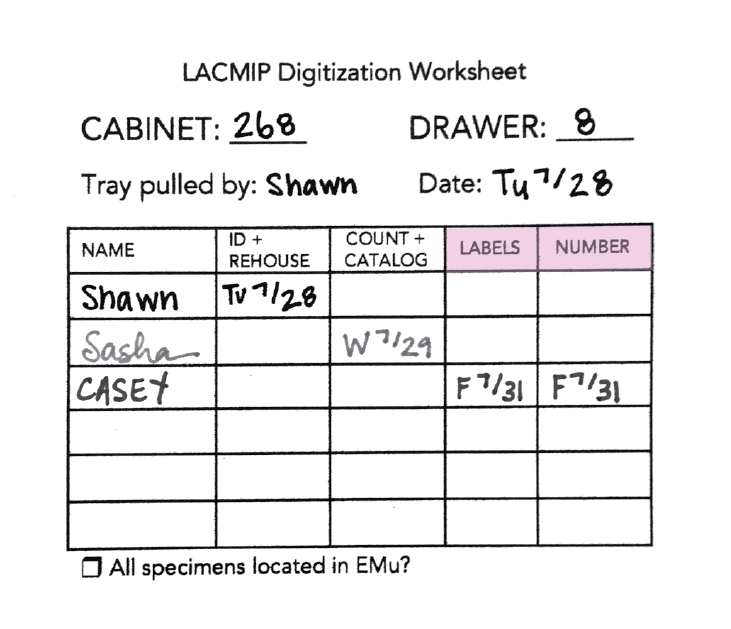 LACMIP Digitization Worksheet
CABINET: 268 DRAWER: 8
Tray pulled by: Shawn Date: Tu 7/28
NAME ID + REHOUSE COUNT + CATALOG LABELS NUMBER
Shawn Tu 7/28
Sasha W 7/29
CASEY F 7/31 F 7/31
All specimens located in EMu?